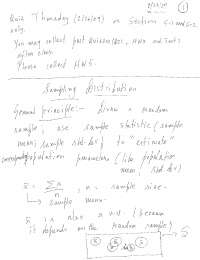 2/23/09 ①
Quiz Thursday (2/26/09) on Sections 6-1 and 6-2
only.
You may collect past Quizzes, HWs and Tests
after class.
Please collect HW5.
Sampling distribution
General principle:- Given a random
sample, use sample statistic (sample
mean, sample std-dev) to "estimate"
corresponding population parameters (like population
mean, std dev)
x̄ = Σx / n, n = sample size.
↳ sample mean.
x̄ is also a r.v. (because
it depends on the random sample)
S